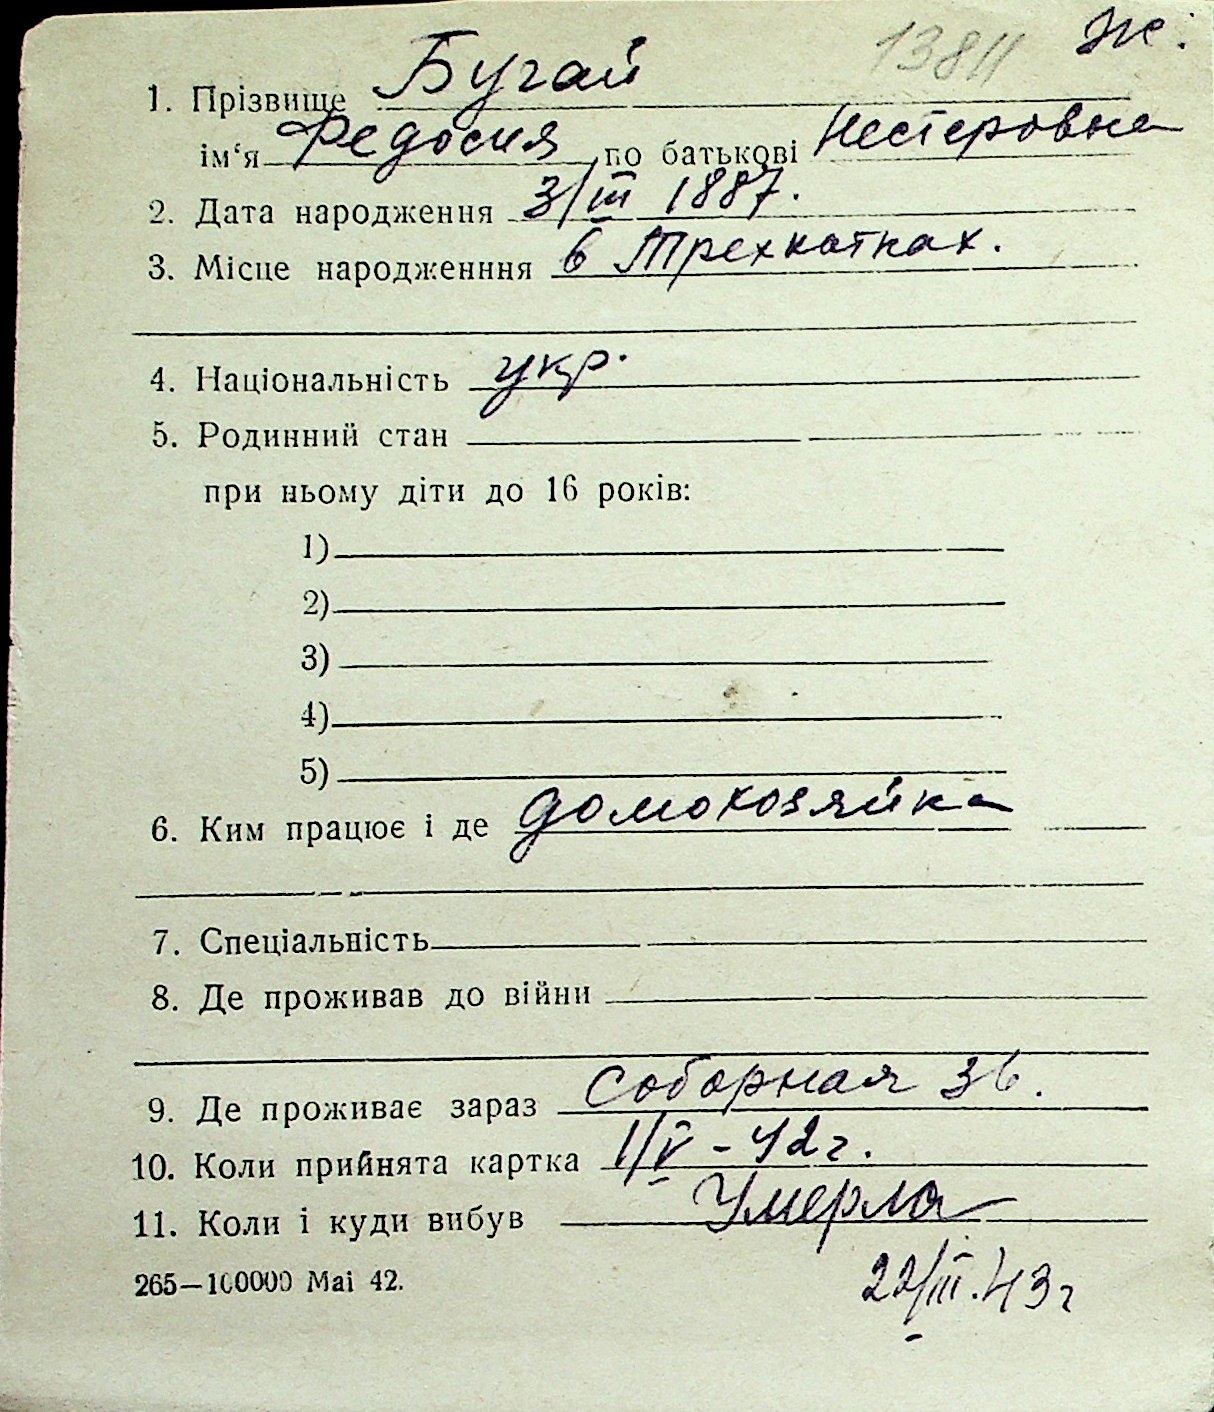 13811 Ж.
1. Прізвище Бугай
ім‘я Федосия по батькові Нестеровна
2. Дата народження 3/III 1887.
3. Місце народженння в Треххатках.
4. Національність укр.
5. Родинний стан
при ньому діти до 16 років:
1)
2)
3)
4)
5)
6. Ким працює і де домохозяйка
7. Спеціальність
8. Де проживав до війни
9. Де проживає зараз Соборная 36.
10. Коли прийнята картка 1/V - 42 г.
11. Коли і куди вибув Умерла
265—100000 Mai 42. 22/III.43 г